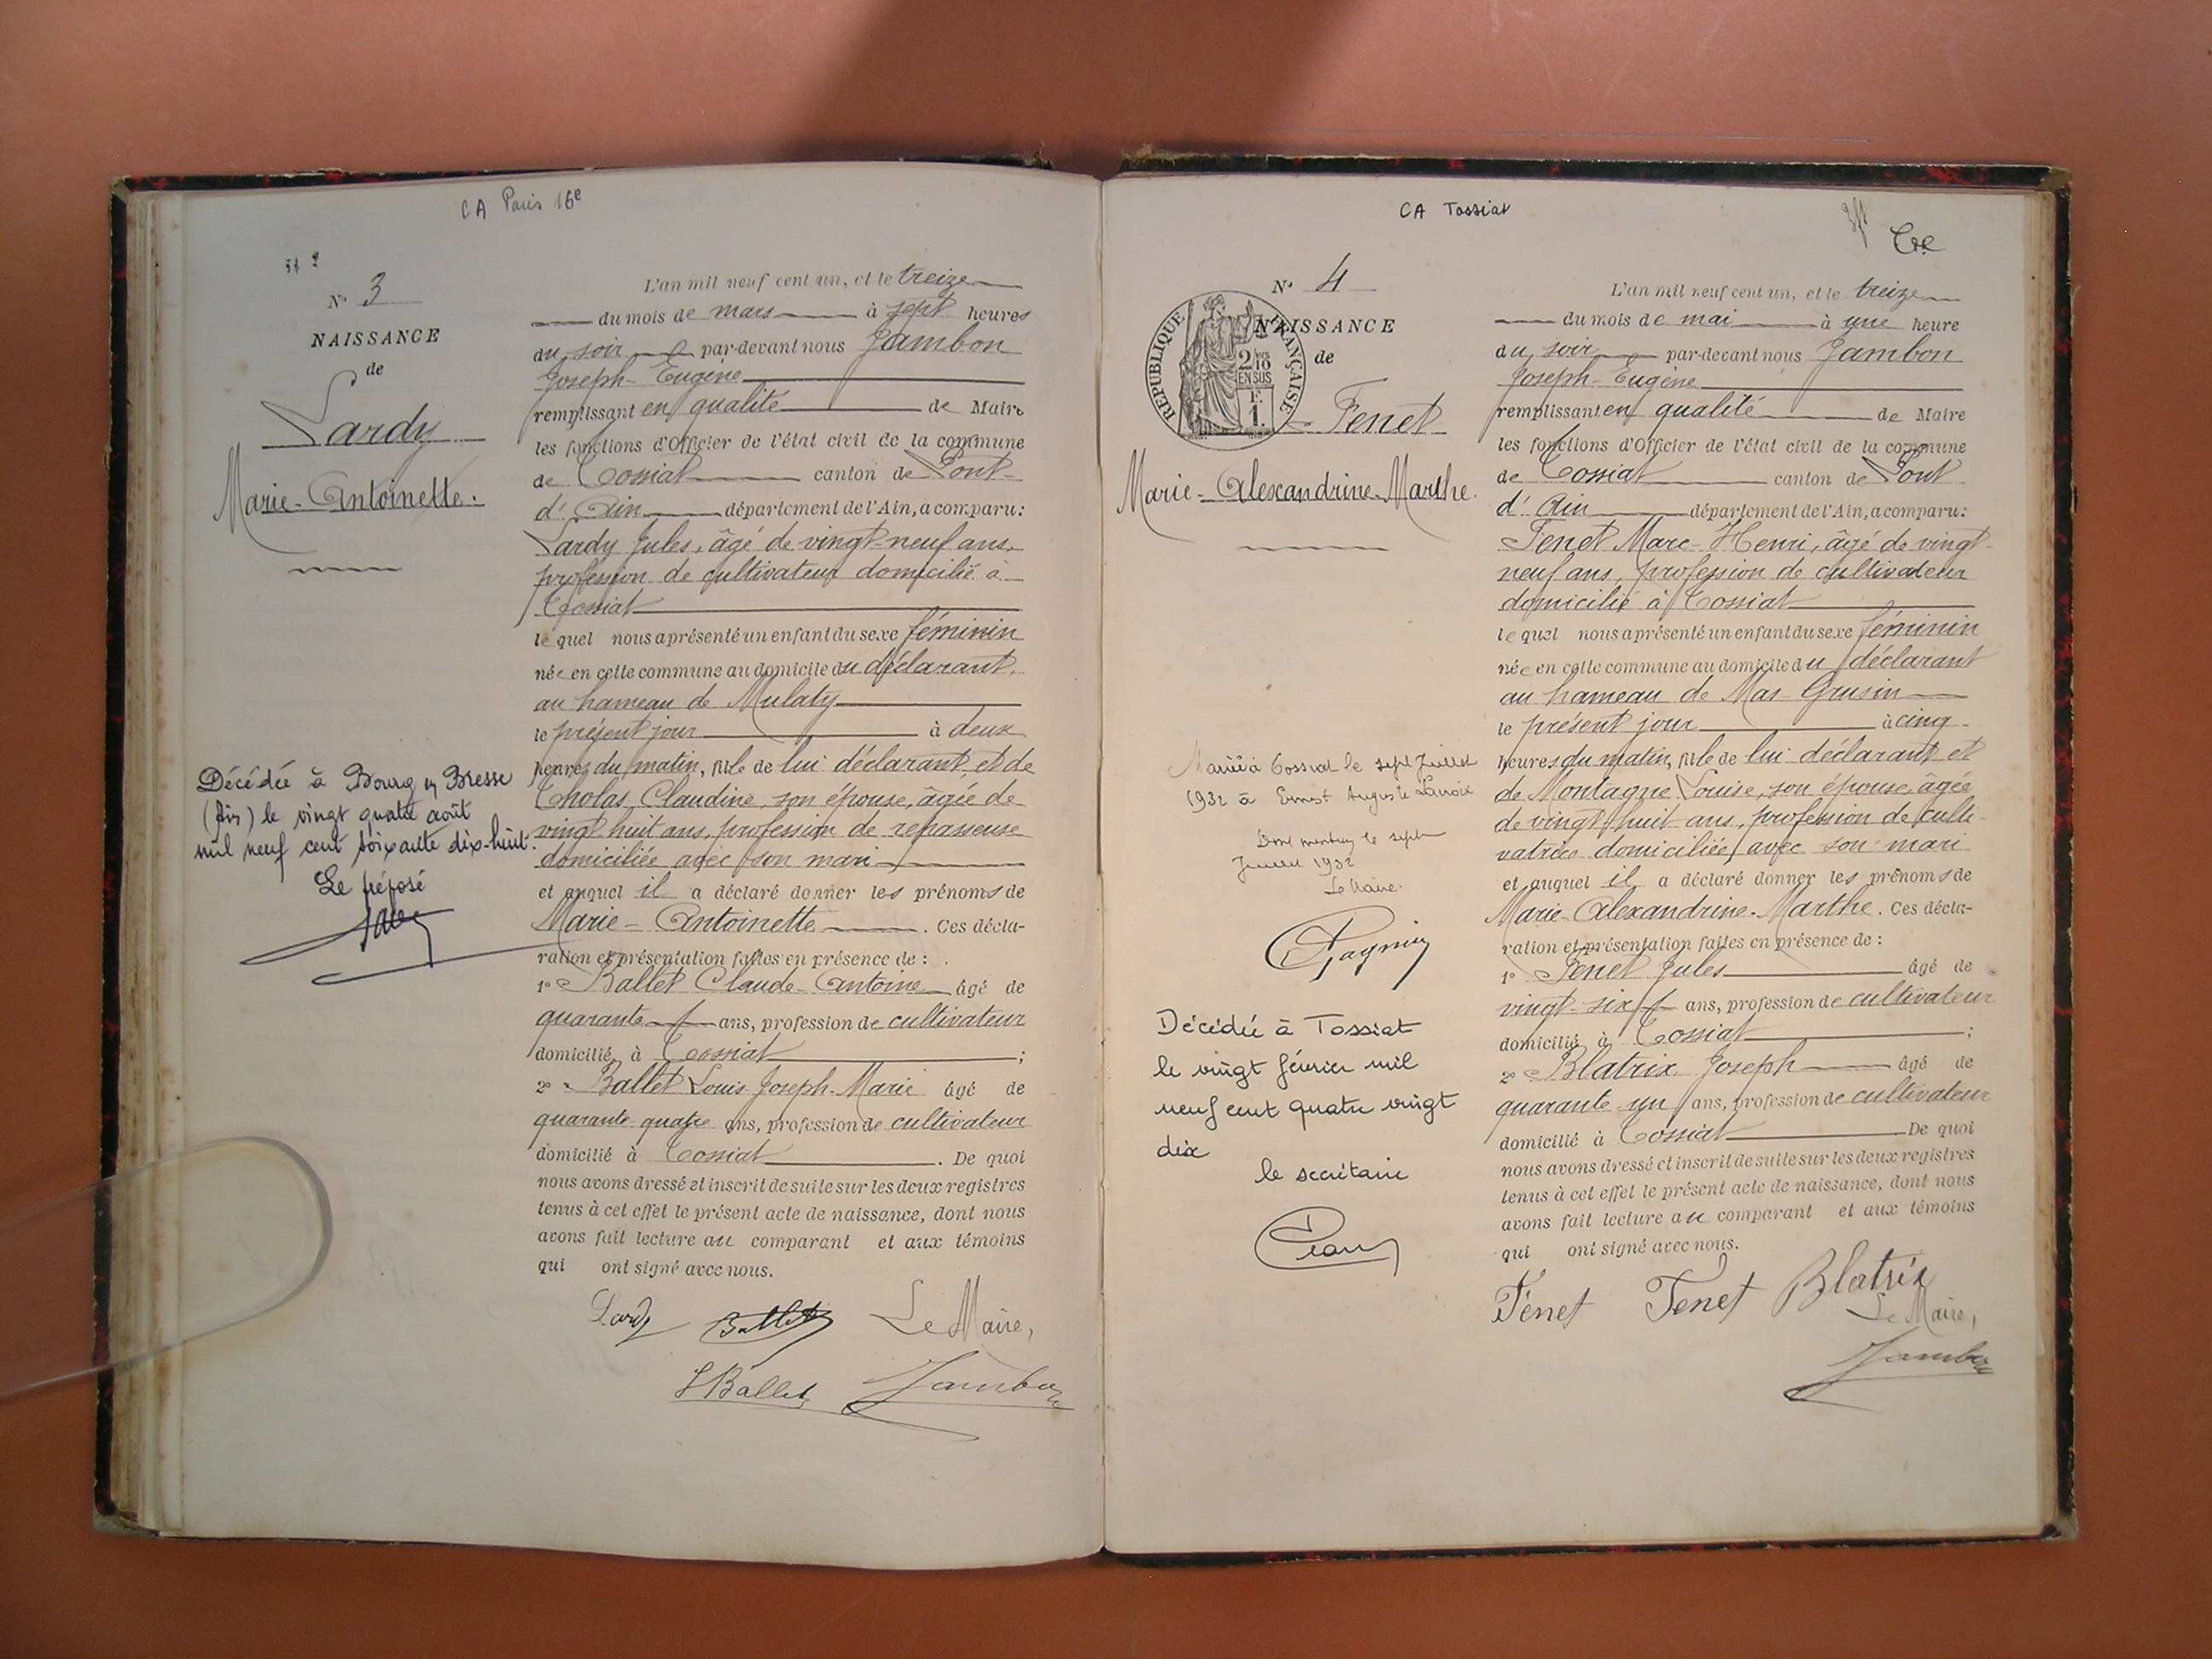 CA Paris 16e
N° 3
NAISSANCE
de
Lardy
Marie-Antoinette.
Décédée à Bourg en Bresse
(Ain) le vingt quatre août
mil neuf cent soixante dix-huit.
Le préposé
L'an mil neuf cent un, et le treize
du mois de mars à sept heures
du soir par-devant nous Jambon
Joseph-Eugène
remplissant en qualité de Maire
les fonctions d'Officier de l'état civil de la commune
de Tossiat canton de Pont-
d'Ain département de l'Ain, a comparu:
Lardy Jules, âgé de vingt-neuf ans,
profession de cultivateur domicilié à
Tossiat
le quel nous a présenté un enfant du sexe féminin
née en cette commune au domicile du déclarant,
au hameau de Mulaty
le présent jour à deux
heures du matin, fille de lui déclarant, et de
Cholas Claudine, son épouse, âgée de
vingt huit ans, profession de repasseuse
domiciliée avec son mari
et auquel il a déclaré donner les prénoms de
Marie-Antoinette. Ces décla-
ration et présentation faites en présence de :
1° Ballet Claude-Antoine âgé de
quarante ans, profession de cultivateur
domicilié à Tossiat ;
2° Ballet Louis-Joseph-Marie âgé de
quarante quatre ans, profession de cultivateur
domicilié à Tossiat. De quoi
nous avons dressé et inscrit de suite sur les deux registres
tenus à cet effet le présent acte de naissance, dont nous
avons fait lecture au comparant et aux témoins
qui ont signé avec nous.
Lardy Ballet Le Maire,
L Ballet Jambon
CA Tossiat
N° 4
NAISSANCE
de
REPUBLIQUE FRANÇAISE
2/10 EN SUS
F. 1.
Fenet
Marie-Alexandrine-Marthe.
Mariée à Tossiat le sept Juillet
1932 à Ernest Auguste Lacroix
Dont mention le sept
Juillet 1932
Le Maire.
Décédée à Tossiat
le vingt février mil
neuf cent quatre vingt
dix
le secrétaire
L'an mil neuf cent un, et le treize
du mois de mai à une heure
du soir par-devant nous Jambon
Joseph-Eugène
remplissant en qualité de Maire
les fonctions d'Officier de l'état civil de la commune
de Tossiat canton de Pont
d'Ain département de l'Ain, a comparu:
Fenet Marc-Henri, âgé de vingt-
neuf ans, profession de cultivateur
domicilié à Tossiat
le quel nous a présenté un enfant du sexe féminin
née en cette commune au domicile du déclarant
au hameau de Mas Grusin
le présent jour à cinq
heures du matin, fille de lui déclarant et
de Montagne Louise, son épouse, âgée
de vingt huit ans, profession de culti-
vatrice domiciliée avec son mari
et auquel il a déclaré donner les prénoms de
Marie-Alexandrine-Marthe. Ces décla-
ration et présentation faites en présence de :
1° Fenet Jules âgé de
vingt-six ans, profession de cultivateur
domicilié à Tossiat ;
2° Blatrix Joseph âgé de
quarante un ans, profession de cultivateur
domicilié à Tossiat De quoi
nous avons dressé et inscrit de suite sur les deux registres
tenus à cet effet le présent acte de naissance, dont nous
avons fait lecture au comparant et aux témoins
qui ont signé avec nous.
Fenet Fenet Blatrix
Le Maire,
Jambon